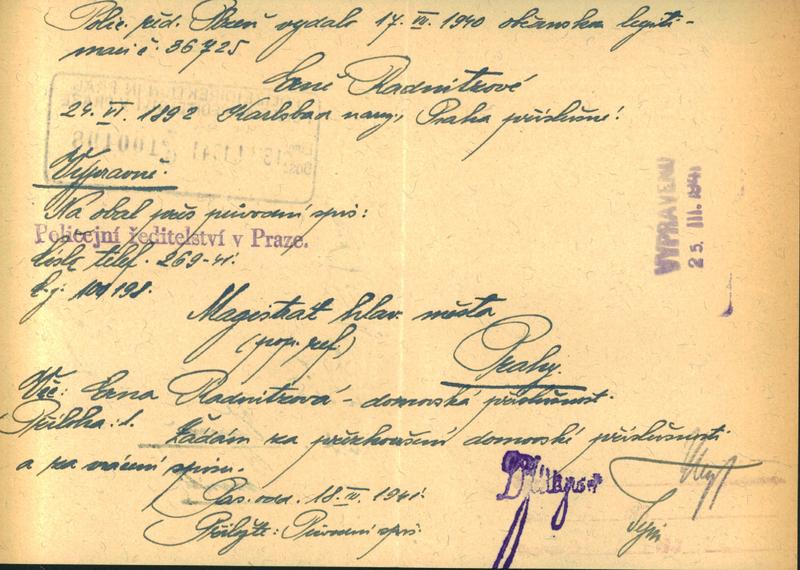 Polic. řed. Plzeň vydalo 17. VII. 1940 občanskou legiti-
maci č. 36725
Erně Radnitzové
24. VI. 1892 Karlsbad nar., Praha příslušné!
Výpravně.
Na obal přes původní spis:
Policejní ředitelství v Praze.
Číslo telef. 269-41.
č.j. 100198.
Magistrát hlav. města
(pop. ref.)
Prahy.
Věc: Erna Radnitzová - domovská příslušnost.
Příloha: 1.
Žádám za přezkoušení domovské příslušnosti
a za vrácení spisu.
Pas. odd. 18. 1941.
Přibyte: Původní spis.
VYPRAVENO
25. III. 1941
100198